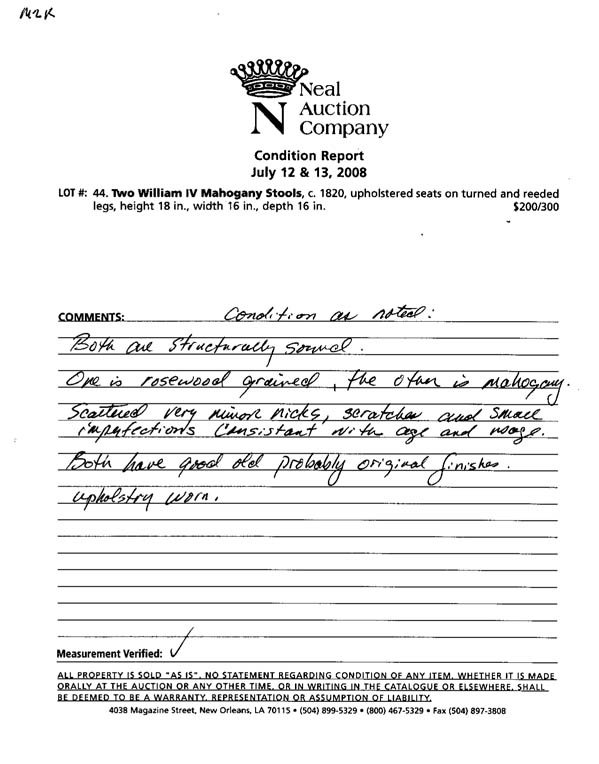 M2K
Neal
N Auction
Company
Condition Report
July 12 & 13, 2008
LOT #: 44. Two William IV Mahogany Stools, c. 1820, upholstered seats on turned and reeded
legs, height 18 in., width 16 in., depth 16 in. $200/300
COMMENTS: Condition as noted:
Both are structurally sound.
One is rosewood grained, the other is mahogany.
Scattered very minor nicks, scratches and small
imperfections consistant with age and usage.
Both have good old probably original finishes.
Upholstry worn.
Measurement Verified: ✓
ALL PROPERTY IS SOLD "AS IS". NO STATEMENT REGARDING CONDITION OF ANY ITEM, WHETHER IT IS MADE
ORALLY AT THE AUCTION OR ANY OTHER TIME, OR IN WRITING IN THE CATALOGUE OR ELSEWHERE, SHALL
BE DEEMED TO BE A WARRANTY, REPRESENTATION OR ASSUMPTION OF LIABILITY.
4038 Magazine Street, New Orleans, LA 70115 • (504) 899-5329 • (800) 467-5329 • Fax (504) 897-3808